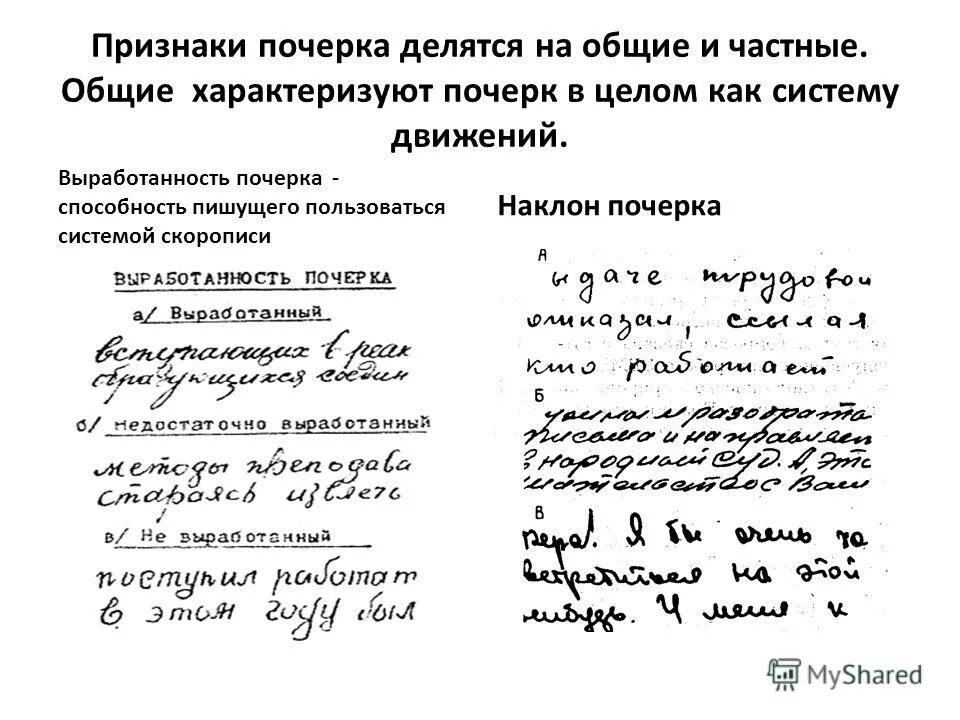 Признаки почерка делятся на общие и частные.
Общие характеризуют почерк в целом как систему
движений.
Выработанность почерка -
способность пишущего пользоваться
системой скорописи
ВЫРАБОТАННОСТЬ ПОЧЕРКА
а/ Выработанный
вступающих в реак
образующихся соедин
б/ Недостаточно выработанный
методы преподава
стараясь извлечь
в/ Не выработанный
поступил работат
в этом году был
Наклон почерка
А
ыдаче трудовой
отказал, ссылая
кто работает
Б
разобрать
письмо и направляем
в народный суд. А, это
с Вам
В
Вера! Я бы очень
встретиться на этой
нибудь. У меня к
MyShared